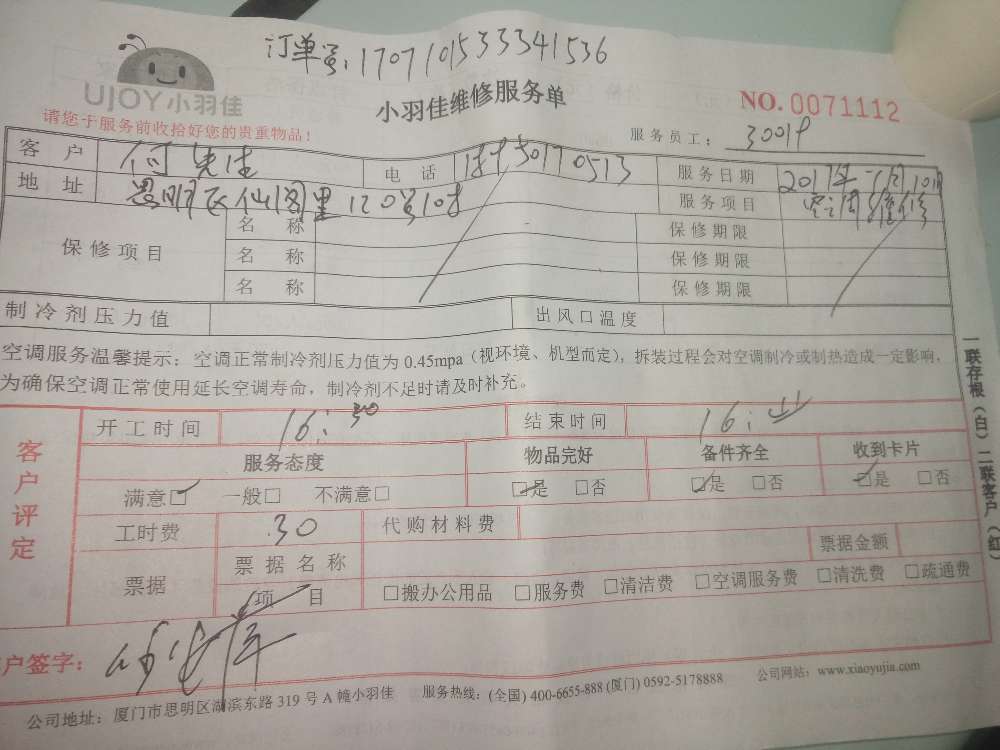 订单号:1707101533341536
UJOY小羽佳
小羽佳维修服务单
NO. 0071112
请您于服务前收拾好您的贵重物品！
服务员工：
客 户
电 话
服务日期 2017年 7月10日
地 址 120号
服务项目 空调维修
保修项目
名 称
保修期限
名 称
保修期限
名 称
保修期限
制冷剂压力值
出风口温度
空调服务温馨提示：空调正常制冷剂压力值为 0.45mpa（视环境、机型而定），拆装过程会对空调制冷或制热造成一定影响，
为确保空调正常使用延长空调寿命，制冷剂不足时请及时补充。
客户评定
开工时间 16:30
结束时间 16:
服务态度
物品完好
备件齐全
收到卡片
满意□ 一般□ 不满意□
□是 □否
□是 □否
□是 □否
工时费 30
代购材料费
票据
票据名称
票据金额
项 目
□搬办公用品 □服务费 □清洁费 □空调服务费 □清洗费 □疏通费
户签字：
公司地址：厦门市思明区湖滨东路 319 号 A 幢小羽佳 服务热线：(全国) 400-6655-888 (厦门) 0592-5178888 公司网站：www.xiaoyujia.com
一联存根（白）二联客户（红）